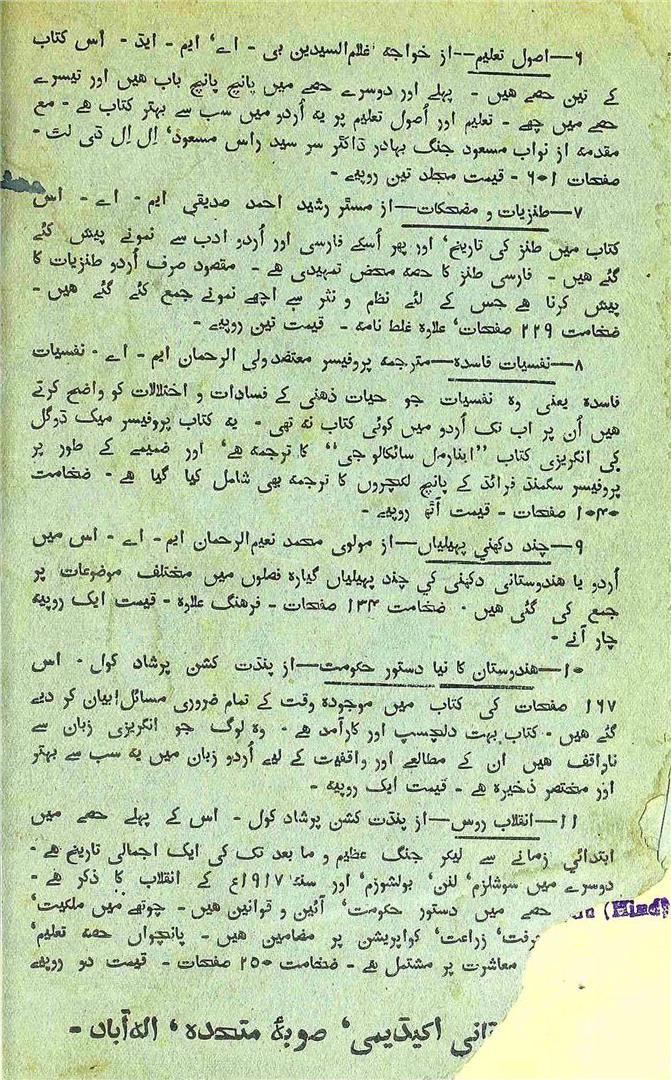 ۶—اصول تعلیم—از خواجه غلام السیدین بی - اے' ایم - ایڈ - اس کتاب
کے تین حصے ہیں - پہلے اور دوسرے حصے میں پانچ پانچ باب ہیں اور تیسرے
حصے میں چھے - تعلیم اور اُصول تعلیم پر یه اُردو میں سب سے بہتر کتاب ہے - مع
مقدمه از نواب مسعود جنگ بہادر ڈاکٹر سر سید راس مسعود' اِل اِل ڈی لٹ -
صفحات ۶۰۱ - قیمت مجلد تین روپیے -
۷—طنزیات و مضحکات—از مسٹر رشید احمد صدیقی ایم - اے - اس
کتاب میں طنز کی تاریخ' اور پھر اُسکے فارسی اور اُردو ادب سے نمونے پیش کئے
گئے ہیں - فارسی طنز کا حصه محض تمہیدی ہے - مقصود صرف اُردو طنزیات کا
پیش کرنا ہے جس کے لئے نظم و نثر سے اچھے نمونے جمع کئے گئے ہیں -
ضخامت ۲۲۹ صفحات' علاوہ غلط نامه - قیمت تین روپیے -
۸—نفسیات فاسدہ—مترجمه پروفیسر معتضد ولی الرحمان ایم - اے - نفسیات
فاسدہ یعنی وہ نفسیات جو حیات ذہنی کے فسادات و اختلالات کو واضح کرتے
ہیں اُن پر اب تک اُردو میں کوئی کتاب نه تھی - یه کتاب پروفیسر میک ڈوگل
کی انگریزی کتاب ''ابنارمل سائکالوجی'' کا ترجمه ہے' اور ضمیمے کے طور پر
پروفیسر سگمنڈ فرائڈ کے پانچ لکچروں کا ترجمه بھی شامل کیا گیا ہے - ضخامت
۱۰۴۰ صفحات - قیمت آٹھ روپیے -
۹—چند دکھنی پہیلیاں—از مولوی محمد نعیم الرحمان ایم - اے - اس میں
اُردو یا ہندوستانی دکھنی کی چند پہیلیاں گیارہ فصلوں میں مختلف موضوعات پر
جمع کی گئی ہیں - ضخامت ۱۳۴ صفحات - فرہنگ علاوہ - قیمت ایک روپیه
چار آنے -
۱۰—ہندوستان کا نیا دستور حکومت—از پنڈت کشن پرشاد کول - اس
۱۶۷ صفحات کی کتاب میں موجودہ وقت کے تمام ضروری مسائل بیان کر دیے
گئے ہیں - کتاب بہت دلچسپ اور کارآمد ہے - وہ لوگ جو انگریزی زبان سے
ناواقف ہیں ان کے مطالعے اور واقفیت کے لیے اُردو زبان میں یه سب سے بہتر
اور مختصر ذخیرہ ہے - قیمت ایک روپیه -
۱۱—انقلاب روس—از پنڈت کشن پرشاد کول - اس کے پہلے حصے میں
ابتدائی زمانے سے لیکر جنگ عظیم و ما بعد تک کی ایک اجمالی تاریخ ہے -
دوسرے میں سوشلزم' لنن' بولشوزم' اور سنه ۱۹۱۷ع کے انقلاب کا ذکر ہے -
حصے میں دستور حکومت' آئین و قوانین ہیں - چوتھے میں ملکیت'
حرفت' زراعت' کواپریشن پر مضامین ہیں - پانچواں حصه تعلیم'
معاشرت پر مشتمل ہے - ضخامت ۲۵۰ صفحات - قیمت دو روپیے
(Hind
تانی اکیڈیمی' صوبۂ متحدہ' اله آباد -